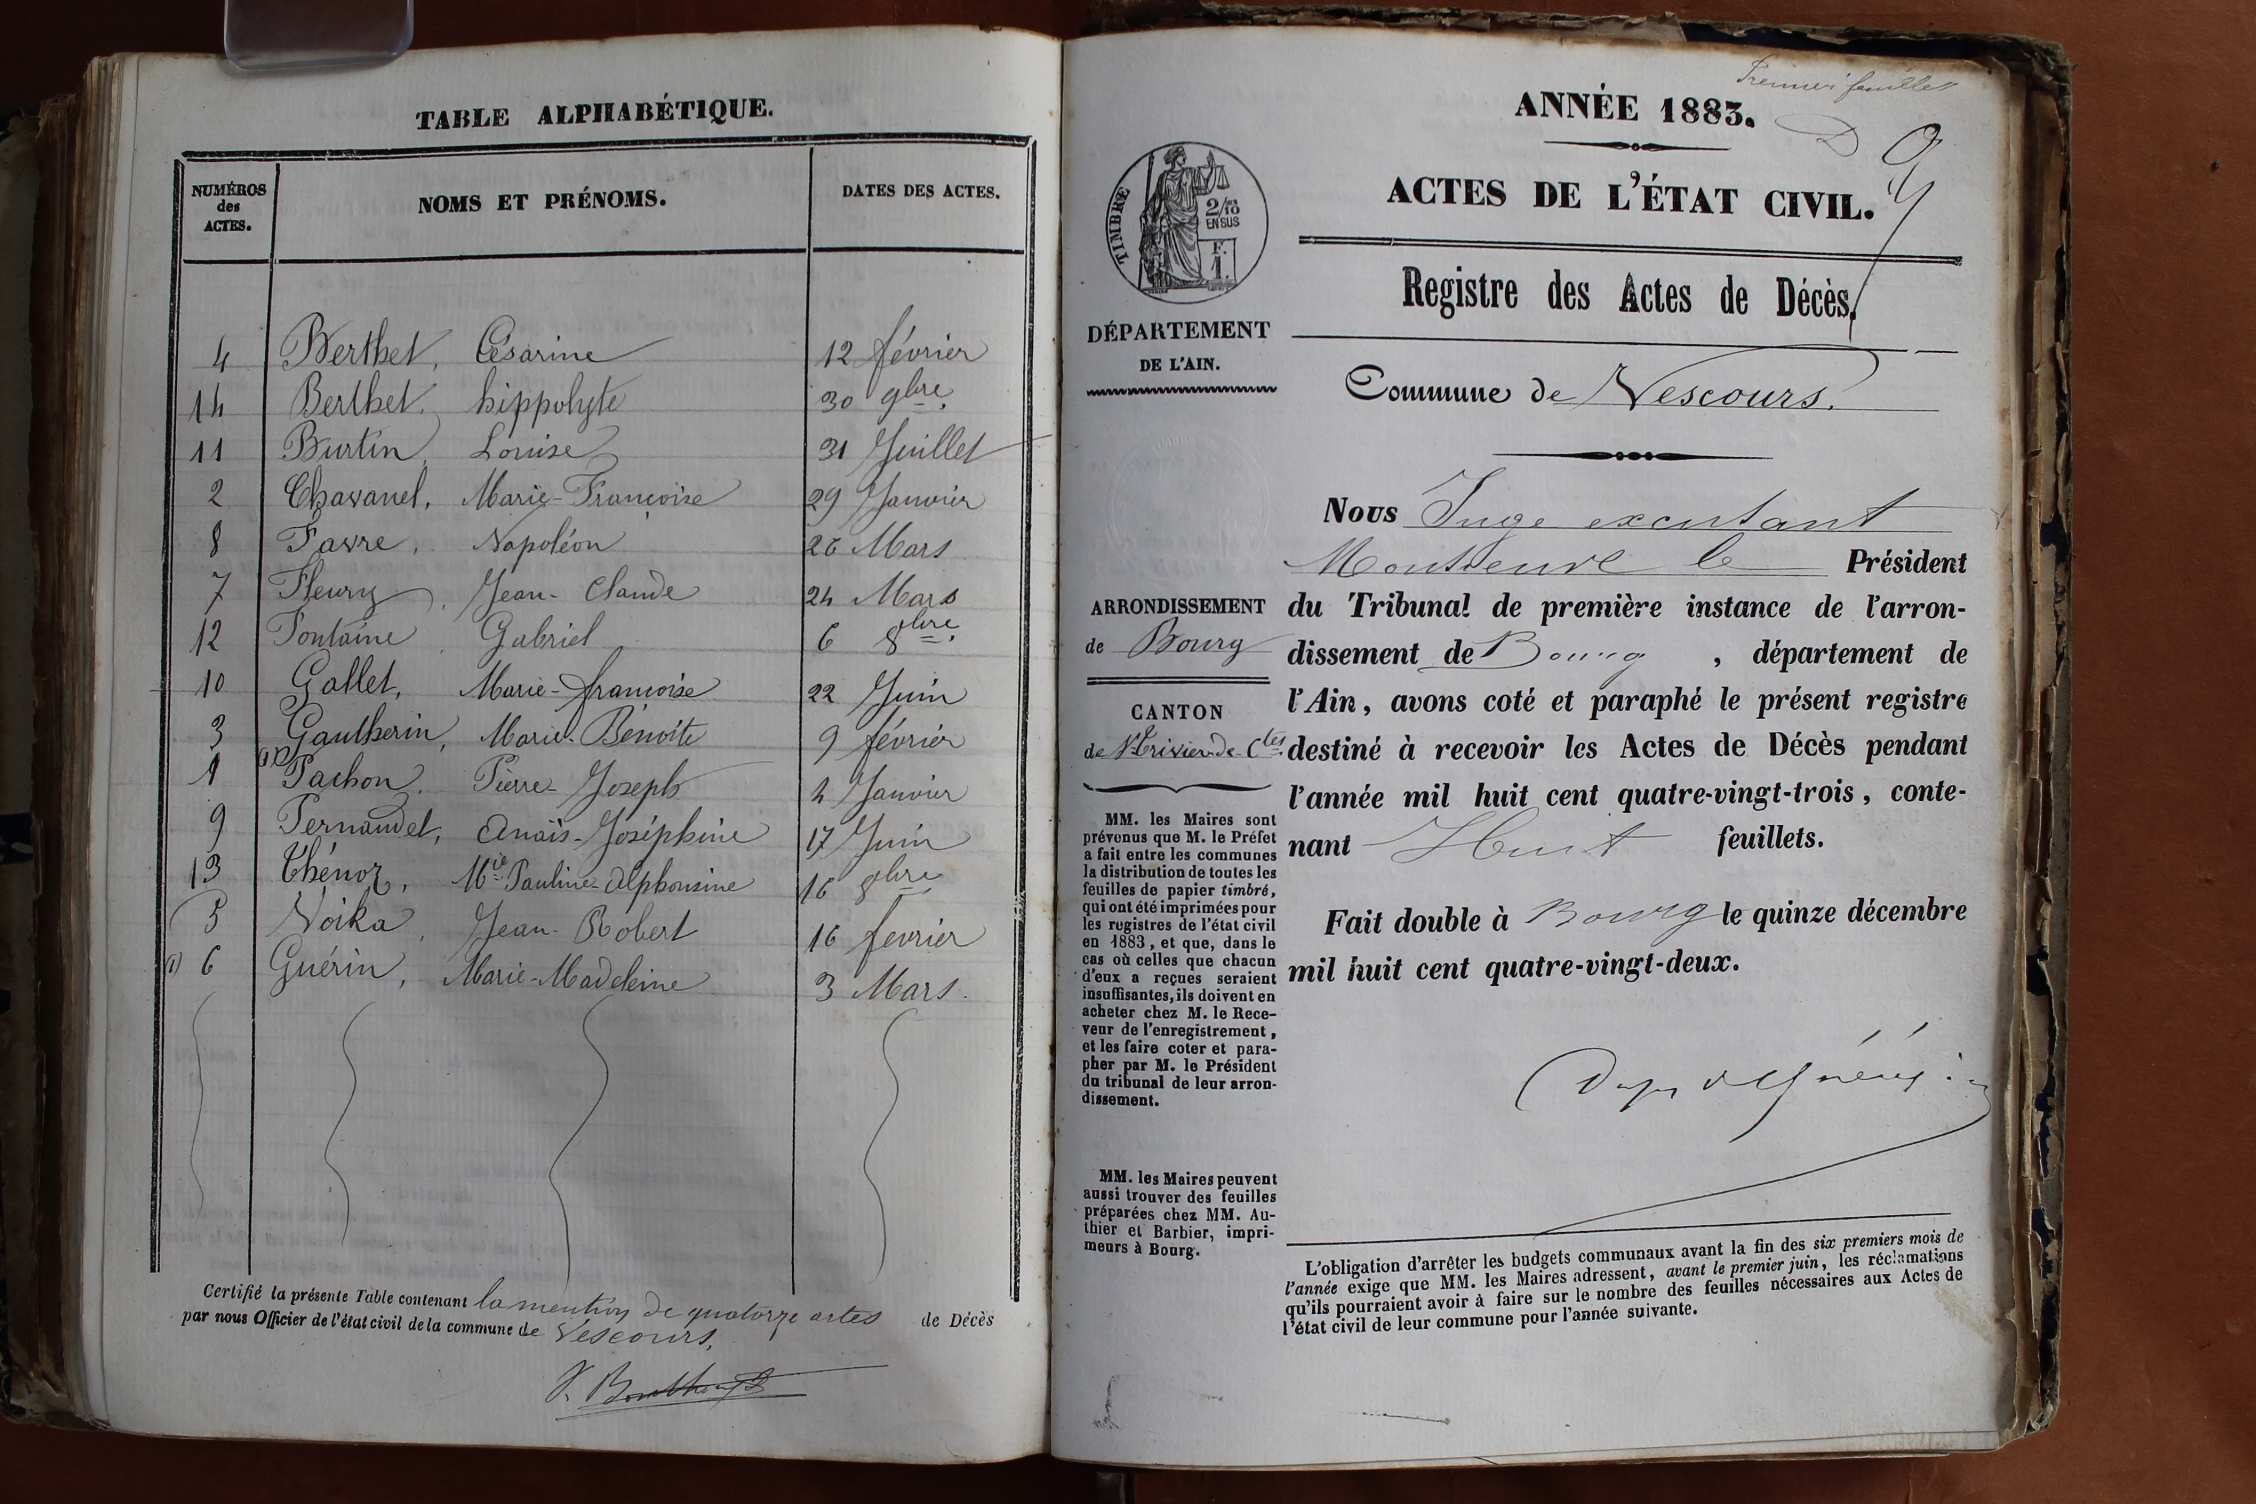 TABLE ALPHABÉTIQUE.
NUMÉROS des ACTES. NOMS ET PRÉNOMS. DATES DES ACTES.
4 Berthet, Césarine 12 février
14 Berthet, hippolyte 30 9bre.
11 Burtin, Louise 31 Juillet
2 Chavanel, Marie-Françoise 29 Janvier
8 Favre, Napoléon 26 Mars
7 Fleury, Jean-Claude 24 Mars
12 Fontaine, Gabriel 6 8bre.
10 Gallet, Marie-françoise 22 Juin
3 Gautherin, Marie-Bénoite 9 février
1 (1) Pachon, Pierre-Joseph 4 Janvier
9 Pernaudet, Anaïs-Joséphine 17 Juin
13 Thénoz, Mie Pauline-Alphonsine 16 8bre
5 Voika, Jean-Robert 16 fevrier
(1) 6 Guérin, Marie-Madeleine 3 Mars.
Certifié la présente Table contenant la mention de quatorze actes de Décès
par nous Officier de l'état civil de la commune de Vescours.
Premier feuillet
ANNÉE 1883.
ACTES DE L'ÉTAT CIVIL.
TIMBRE
2/10
EN SUS
F.
1.
Registre des Actes de Décès.
DÉPARTEMENT
DE L'AIN.
Commune de Vescours.
ARRONDISSEMENT
de Bourg
CANTON
de St Trivier-de-Ctes
MM. les Maires sont
prévenus que M. le Préfet
a fait entre les communes
la distribution de toutes les
feuilles de papier timbré,
qui ont été imprimées pour
les registres de l'état civil
en 1883, et que, dans le
cas où celles que chacun
d'eux a reçues seraient
insuffisantes, ils doivent en
acheter chez M. le Rece-
veur de l'enregistrement,
et les faire coter et para-
pher par M. le Président
du tribunal de leur arron-
dissement.
MM. les Maires peuvent
aussi trouver des feuilles
préparées chez MM. Au-
thier et Barbier, impri-
meurs à Bourg.
Nous Juge
le Président
du Tribunal de première instance de l'arron-
dissement de Bourg, département de
l'Ain, avons coté et paraphé le présent registre
destiné à recevoir les Actes de Décès pendant
l'année mil huit cent quatre-vingt-trois, conte-
nant Huit feuillets.
Fait double à Bourg le quinze décembre
mil huit cent quatre-vingt-deux.
L'obligation d'arrêter les budgets communaux avant la fin des six premiers mois de
l'année exige que MM. les Maires adressent, avant le premier juin, les réclamations
qu'ils pourraient avoir à faire sur le nombre des feuilles nécessaires aux Actes de
l'état civil de leur commune pour l'année suivante.